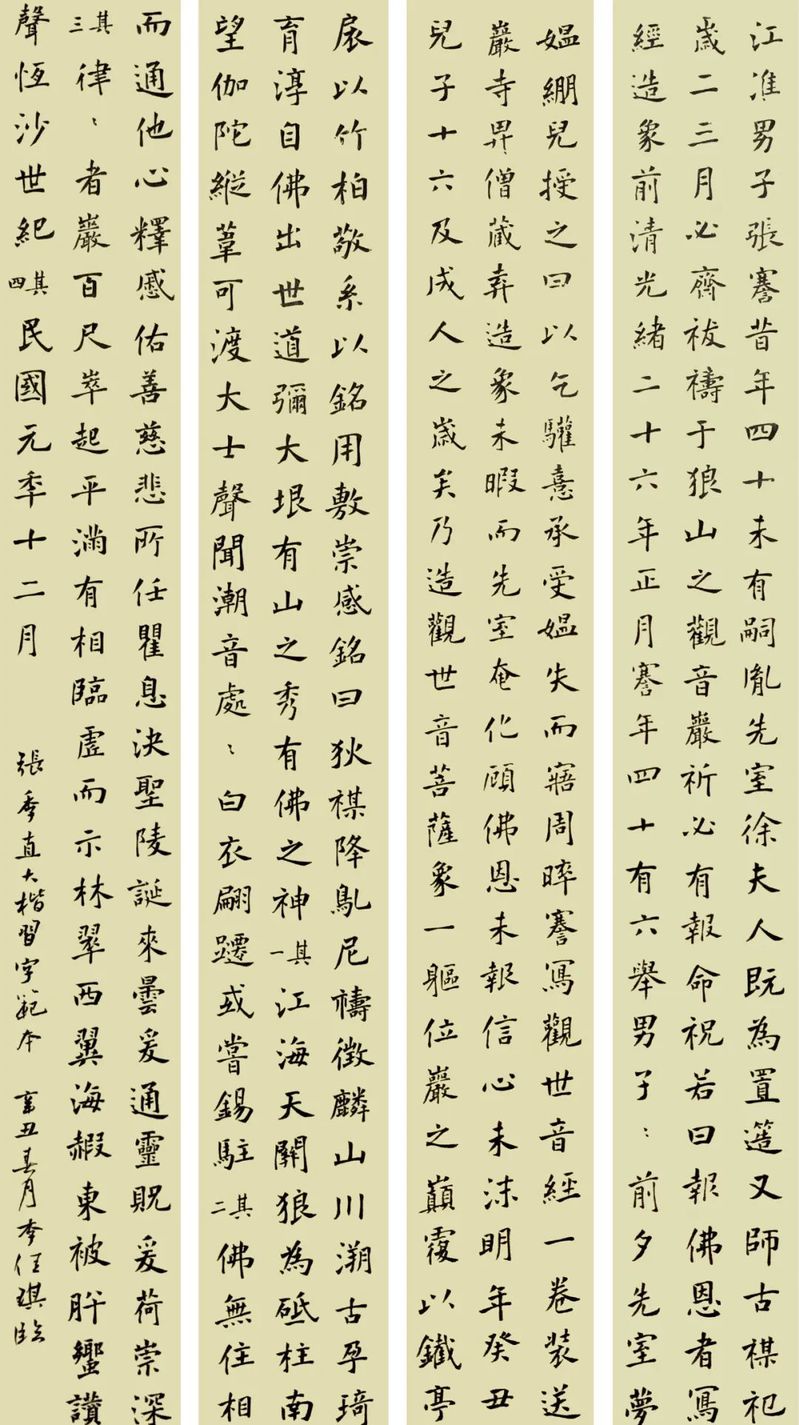 江淮男子張謇昔年四十未有嗣胤先室徐夫人既為置簉又師古禖祀
歲二三月必齋祓禱于狼山之觀音巖祈必有報命祝若曰報佛恩者寫
經造象前清光緒二十六年正月謇年四十有六舉男子〻前夕先室夢
媼繃兒授之曰以乞驩憙承受媼失而寤周晬謇寫觀世音經一卷裝送
巖寺畀僧蔵弆造象未暇而先室奄化顧佛恩未報信心未沫明年癸丑
兒子十六及成人之歲矣乃造觀世音菩薩象一軀位巖之巔覆以鐵亭
扆以竹柏敬系以銘用敷崇感銘曰狄禖降鳦尼禱徵麟山川溯古孕琦
育淳自佛出世道彌大垠有山之秀有佛之神其一江海天闢狼為砥柱南
望伽陀縱葦可渡大士聲聞潮音處〻白衣翩躚或嘗錫駐其二佛無住相
而通他心釋慼佑善慈悲所任瞿息決聖陵誕來曇爰通靈貺爰荷崇深
其三律〻者巖百尺崒起平澫有相臨虛而示林翠西翼海赮東被肸蠁讚
聲恆沙世紀其四民國元季十二月
張季直大楷習字範本 辛丑春月李任琪臨